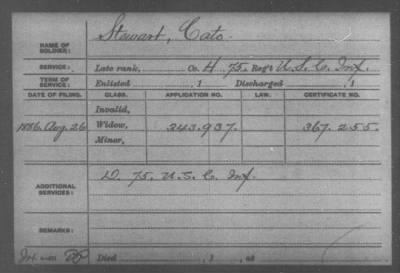 NAME OF SOLDIER: Stewart, Cato.
SERVICE: Late rank, Co. H, 75. Reg't U. S. C. Inf.
TERM OF SERVICE: Enlisted , 1 Discharged , 1
DATE OF FILING. CLASS. APPLICATION NO. LAW. CERTIFICATE NO.
Invalid,
1886. Aug. 26 Widow, 343.937. 367.255.
Minor,
ADDITIONAL SERVICES: D. 75. U. S. C. Inf.
REMARKS:
Died , 1 , at